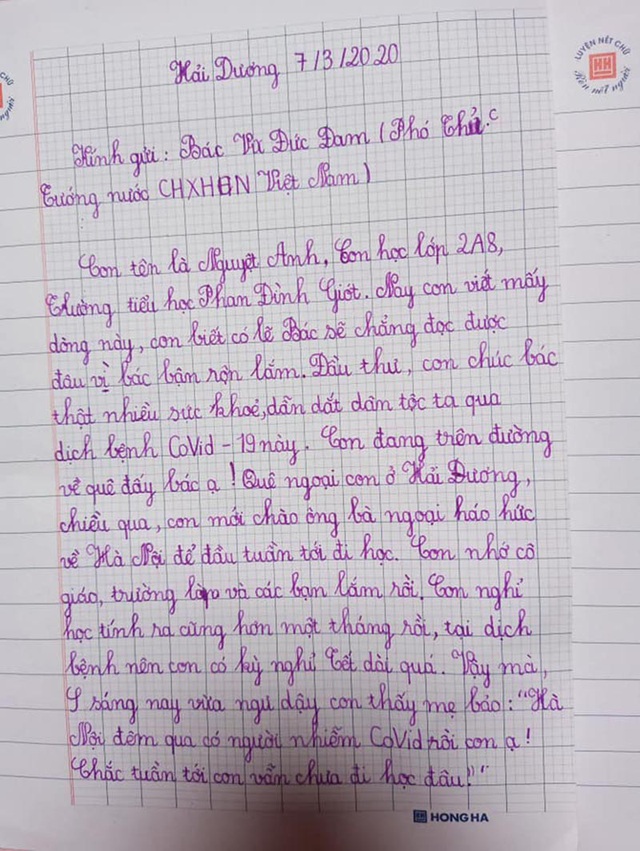 Hải Dương 7/3/2020
Kính gửi: Bác Vũ Đức Đam (Phó Thủ
tướng nước CHXHCN Việt Nam)
Con tên là Nguyệt Anh, Con học lớp 2A8,
trường tiểu học Phan Đình Giót. Nay con viết mấy
dòng này, con biết có lẽ Bác sẽ chẳng đọc được
đâu vì bác bận rộn lắm. Đầu thư, con chúc bác
thật nhiều sức khoẻ, dẫn dắt dâm tộc ta qua
dịch bệnh CoVid-19 này. Con đang trên đường
về quê đấy bác ạ! Quê ngoại con ở Hải Dương,
chiều qua, con mới chào ông bà ngoại háo hức
về Hà Nội để đầu tuần tới đi học. Con nhớ cô
giáo, trường lớp và các bạn lắm rồi. Con nghỉ
học tính ra cũng hơn một tháng rồi, tại dịch
bệnh nên con có kỳ nghỉ Tết dài quá. Vậy mà,
sáng nay vừa ngủ dậy con thấy mẹ bảo: "Hà
Nội đêm qua có người nhiễm CoVid rồi con ạ!
Chắc tuần tới con vẫn chưa đi học đâu!"
HONG HA
LUYỆN NÉT CHỮ
Rèn nết người
HH